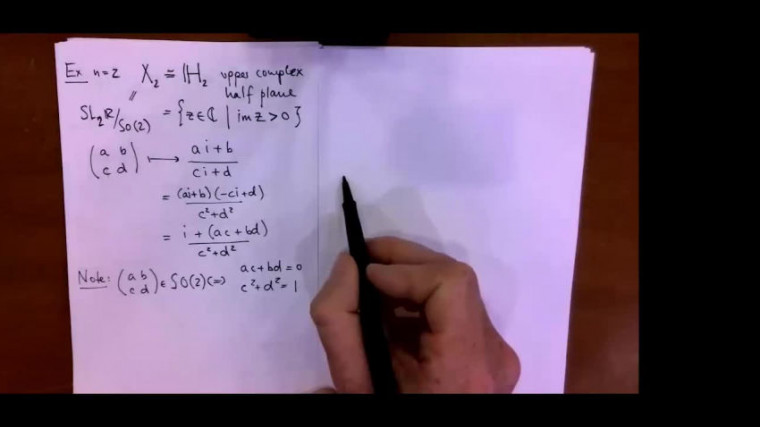 Ex n=2 X₂ ≅ ℍ₂ upper complex
half plane
SL₂ℝ/SO(2) = {z∈ℂ | im z > 0}
(a b c d) ⟼ (ai+b)/(ci+d)
= (ai+b)(-ci+d)/(c²+d²)
= i + (ac+bd)/(c²+d²)
Note: (a b c d) ∈ SO(2) ⟺ ac+bd=0
c²+d²=1